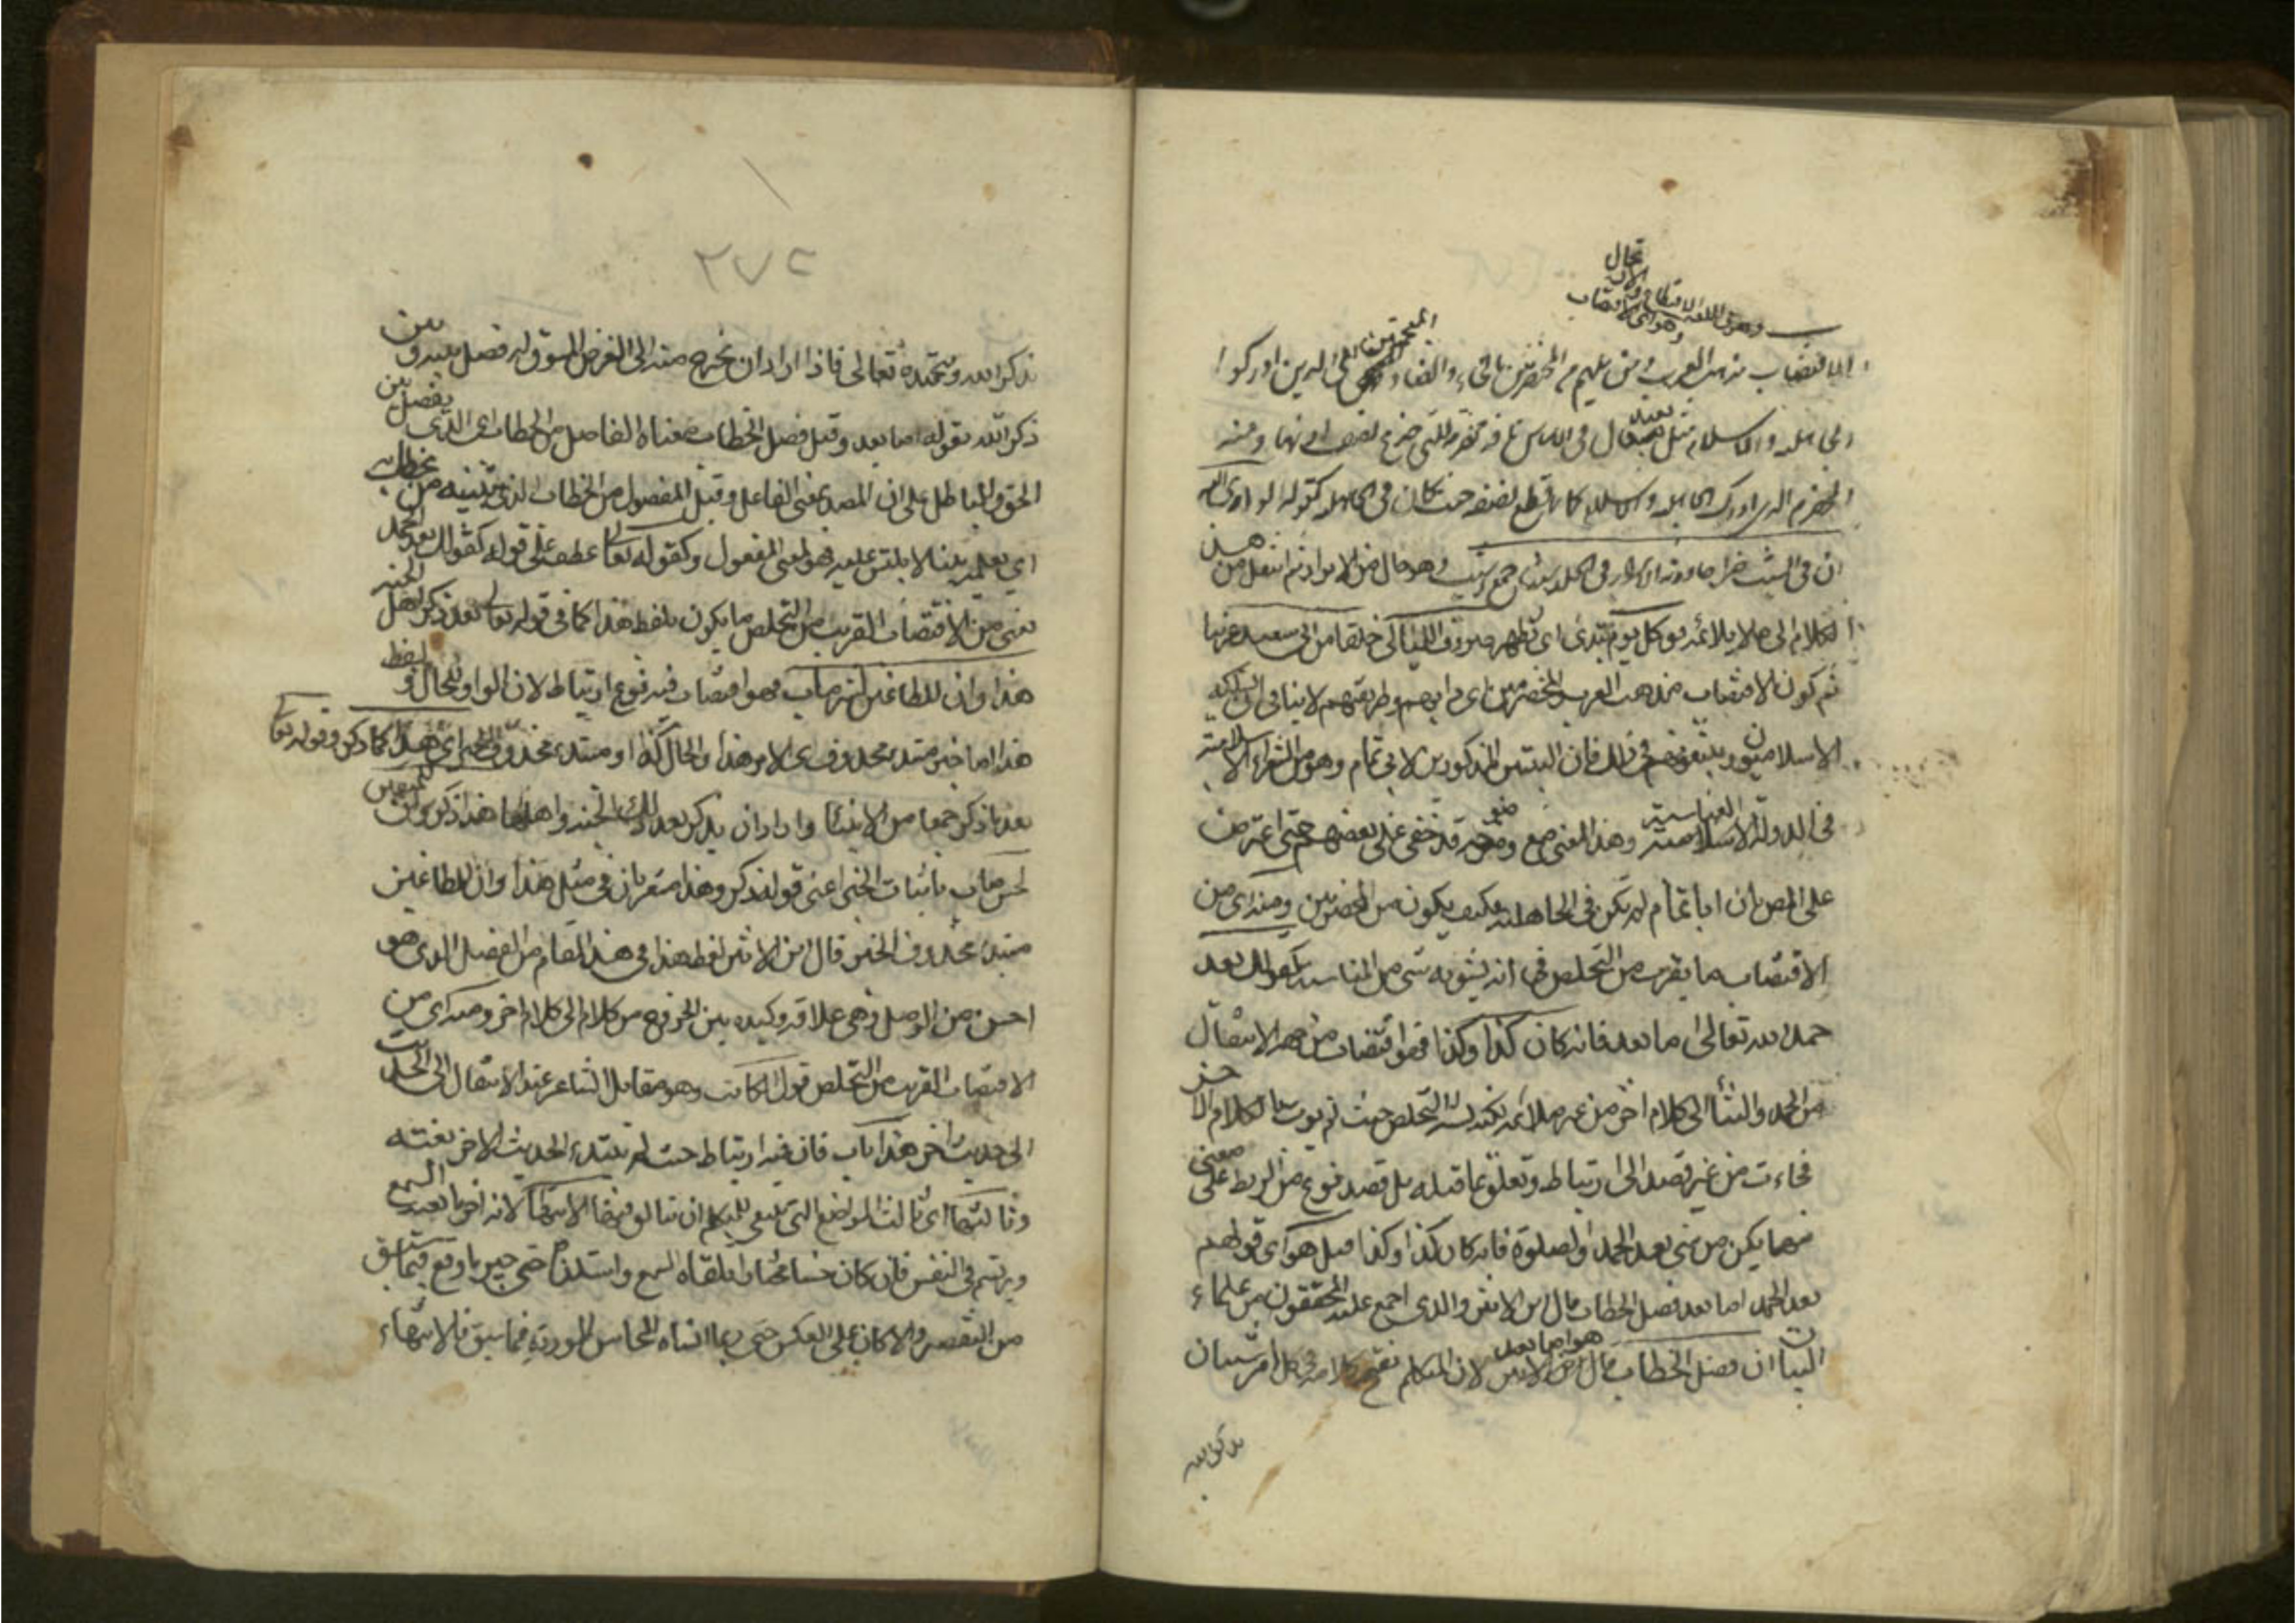 وهو في اللغة الاقتطاع والارتجال
وهو اى الاقتضاب
الاقتضاب مذهب العرب ومن يليهم من المخضرمين بالخاء والضاد المعجمتين اى الذين ادركوا
الجاهلية والاسلام مثل لبيد قال في الاساس ناقة مخضرمة التي جذع نصف اذنها ومنه
المخضرم الذى ادرك الجاهلية والاسلام كانما قطع نصفه حيث كان في الجاهلية كقوله لو راى الله
ان في الشيب خيرا جاورته الابرار في الخلد شيبا جمع اشيب وهو حال من الابرار ثم انتقل من هذا
الكلام الى ما لا يلائمه فقال كل يوم تبدى اى تظهر صروف الليالى خلقا من ابى سعيد غريبا
ثم كون الاقتضاب مذهب العرب والمخضرمين اى دابهم وطريقتهم لا ينافى ان يسلكه
الاسلاميون ويتبعونهم في ذلك فان البيتين المذكورين لابى تمام وهو من الشعراء الاسلامية
في الدولة العباسية وهذا المعنى مع وضوحه قد خفى على بعضهم حتى اعترض
على المص بان ابا تمام لم يكن في الجاهلية فكيف يكون من المخضرمين ومنه اى من
الاقتضاب ما يقرب من التخلص في انه يشوبه شئ من المناسبة كقولك بعد
حمد الله تعالى اما بعد فانه كان كذا وكذا فهو اقتضاب من جهة الانتقال
من الحمد والثناء الى كلام اخر من غير ملائمة لكنه يشبه التخلص حيث لم يوت بالكلام الاخر
فجاءة من غير قصد الى ارتباط وتعلق بما قبله بل قصد نوع من الربط على معنى
مهما يكن من شئ بعد الحمد والصلوة فانه كان كذا وكذا قيل هو اى قولهم
بعد الحمد اما بعد فصل الخطاب قال ابن الاثير والذى اجمع عليه المحققون من علماء
البيان ان فصل الخطاب هو اما بعد لان المتكلم يفتتح كلامه في كل امر ذى شان
بذكر الله
٢٧٢
بذكر الله وتحميده تعالى فاذا اراد ان يخرج منه الى الغرض المسوق له فصل بينه وبين
ذكر الله بقوله اما بعد وقيل فصل الخطاب معناه الفاصل من الخطاب اى الذى يفصل بين
الحق والباطل على ان المصدر بمعنى الفاعل وقيل المفصول من الخطاب الذى يتبينه من يخاطب به
اى يعلمه بينا لا يلتبس عليه فهو بمعنى المفعول وكقوله تعالى عطف على قوله كقولك بعد الحمد
يعنى من الاقتضاب القريب من التخلص ما يكون بلفظ هذا كما في قوله تعالى بعد ذكر اهل الجنة
هذا وان للطاغين لشر ماب فهو اقتضاب فيه نوع ارتباط لان الواو للحال ولفظ
هذا اما خبر مبتدء محذوف اى الامر هذا والحال كذا او مبتدء محذوف الخبر اى هذا كما ذكر وقوله تعالى
بعد ما ذكر جمعا من الانبياء واراد ان يذكر بعد ذلك الجنة واهلها هذا ذكر وان للمتقين
لحسن ماب باثبات الخبر اعنى قوله ذكر وهذا مشعر بان في مثل هذا وان للطاغين
مبتداء محذوف الخبر قال ابن الاثير لفظ هذا في هذا المقام من الفصل الذى هو
احسن من الوصل وهي علاقة وكيدة بين الخروج من كلام الى كلام اخر ومنه اى من
الاقتضاب القريب من التخلص قول الكاتب وهو مقابل الشاعر عند الانتقال الى الحديث
الى حديث اخر هذا باب فان فيه ارتباط حيث لم يبتدء الحديث الاخر بغتة
وثالثها اى ثالث المواضع التي ينبغي للمتكلم ان يتانق فيها الانتهاء لانه اخر ما يعيه السمع
ويرتسم في النفس فان كان حسنا مختارا تلقاه السمع واستلذه حتى جبر ما وقع فيما سبق
من التقصير والا كان على العكس حتى ربما انساه المحاسن الموردة فيما سبق فالانتهاء